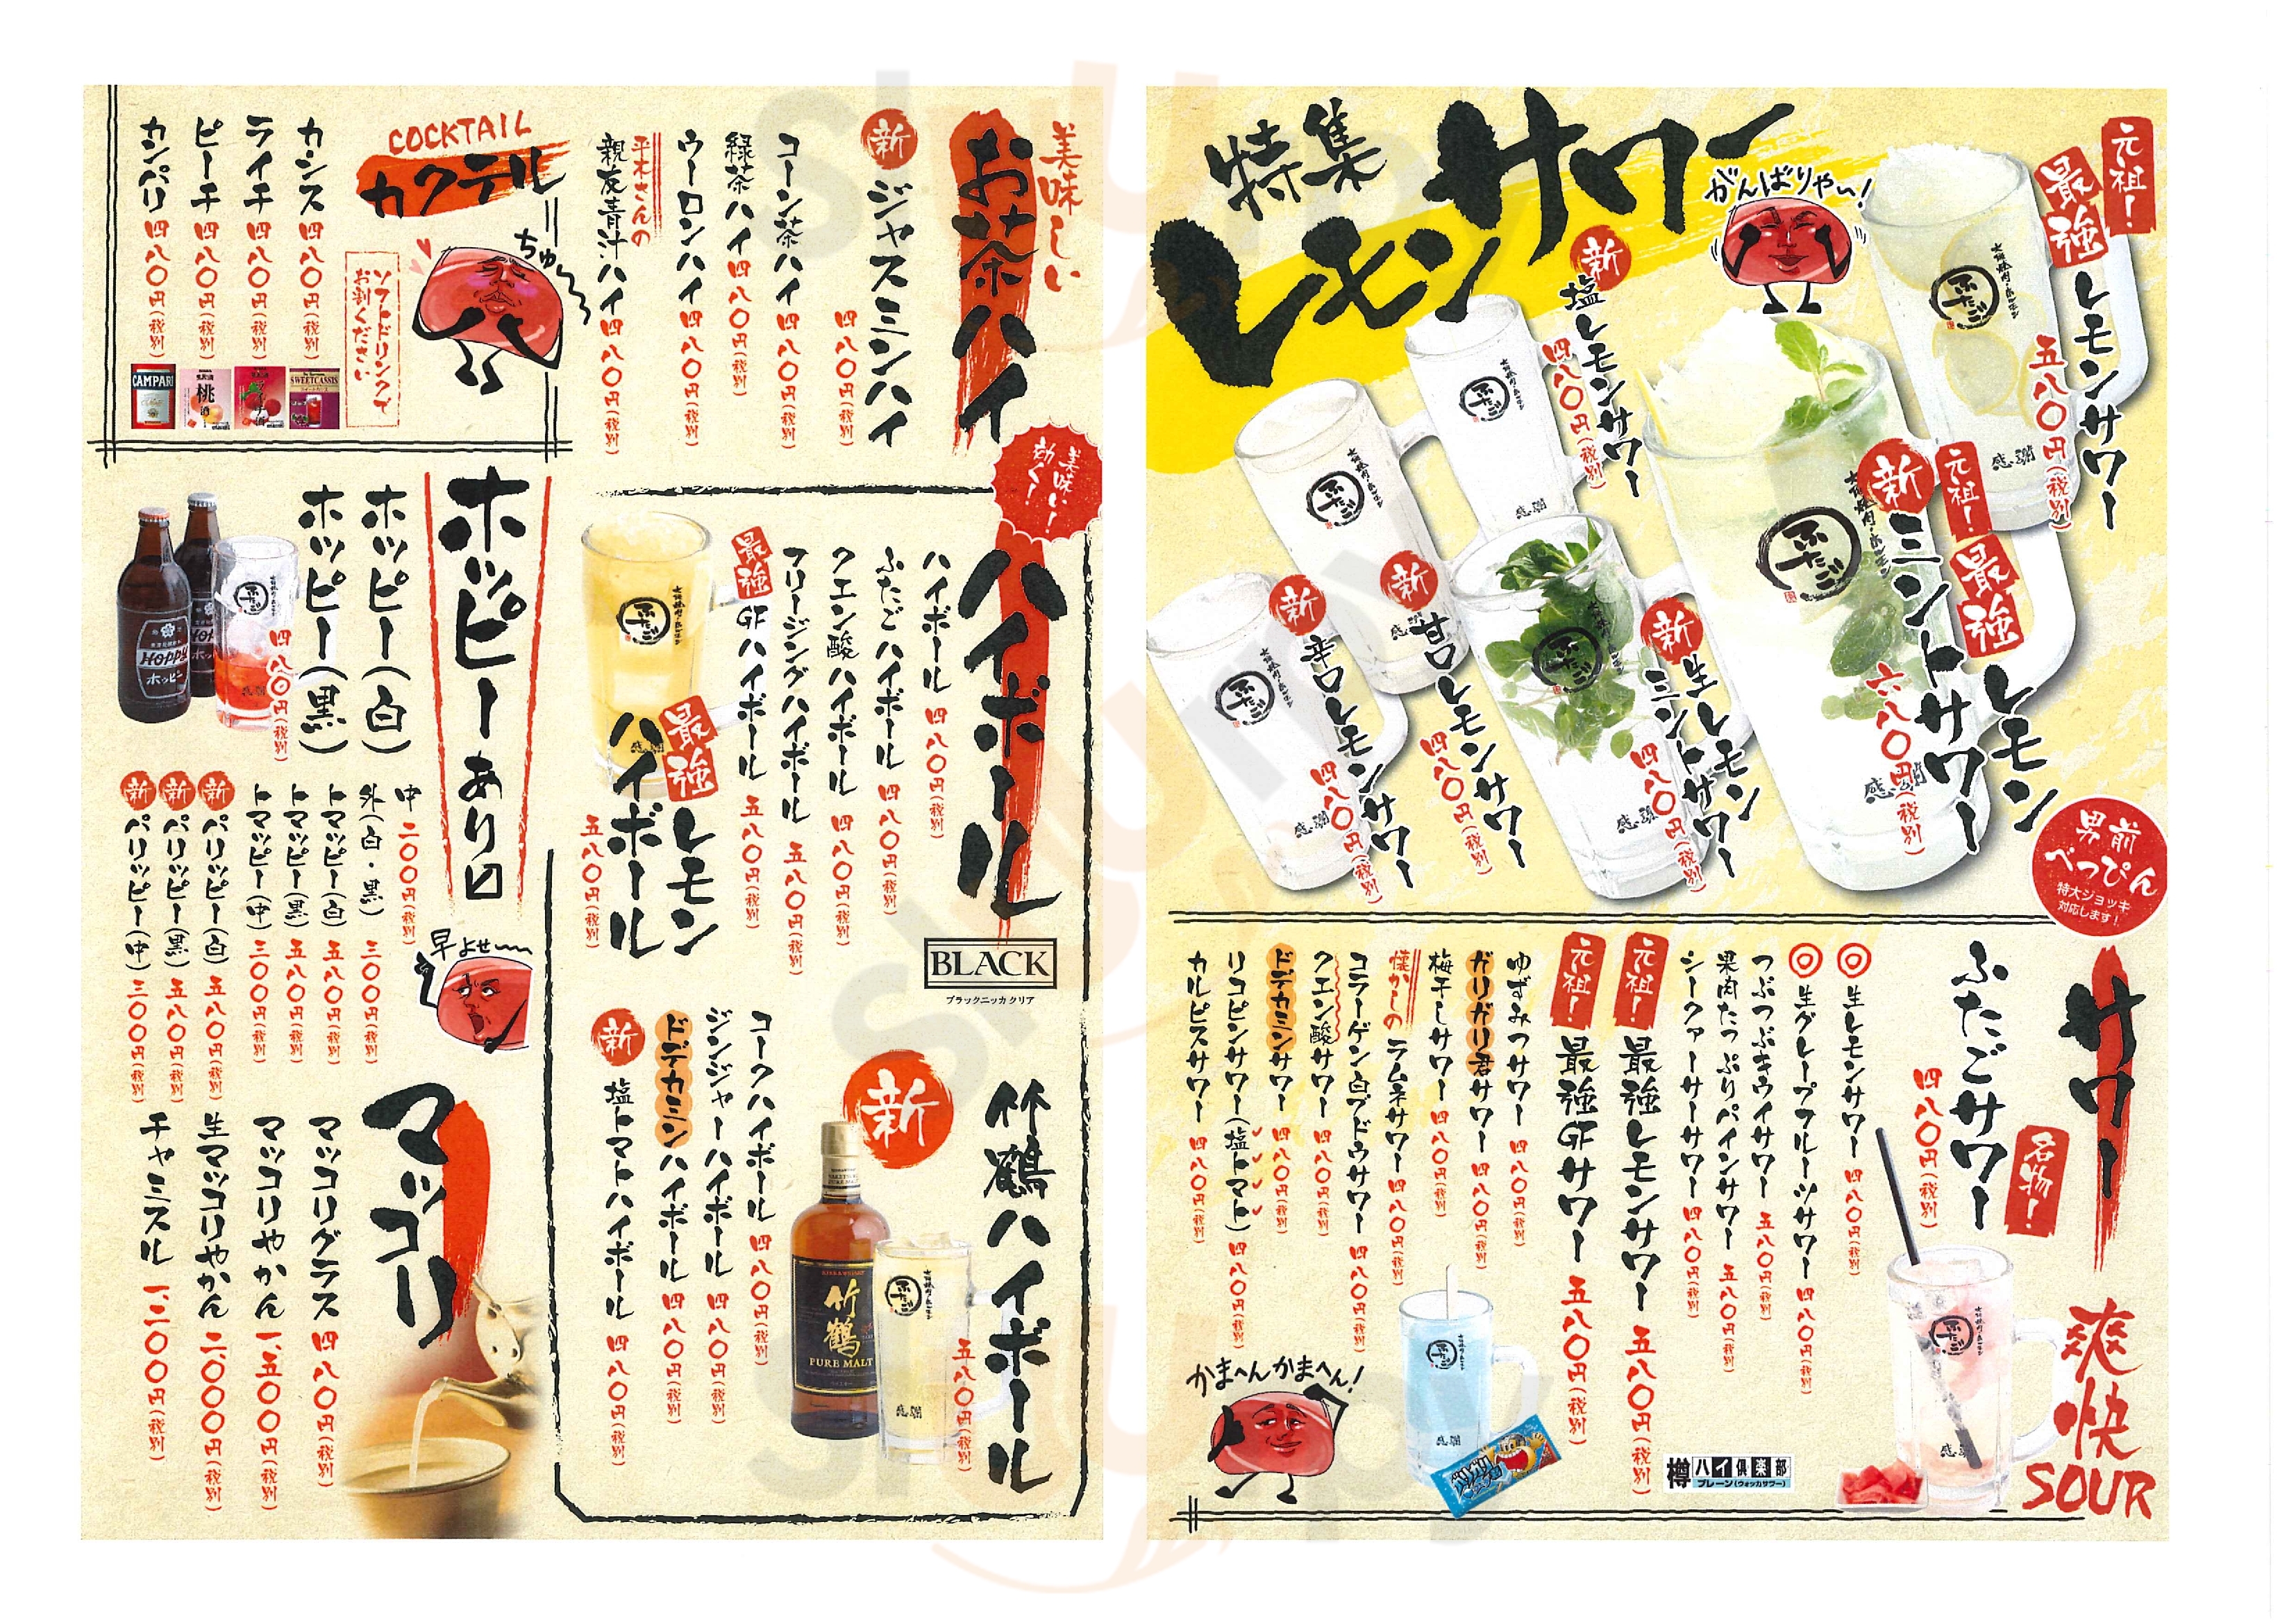 特集
レモンサワー
がんばりゃい!
元祖!
最強
レモンサワー
五八〇円(税別)
新
塩レモンサワー
四八〇円(税別)
元祖!
最強
新
レモン
ミントサワー
六八〇円(税別)
新
生レモン
ミントサワー
四八〇円(税別)
新
甘口レモンサワー
四八〇円(税別)
新
辛口レモンサワー
四八〇円(税別)
男前
べっぴん
特大ジョッキ
対応します!
サワー
爽快
SOUR
名物!
ふたごサワー
四八〇円(税別)
◎生レモンサワー 四八〇円(税別)
◎生グレープフルーツサワー 四八〇円(税別)
つぶつぶキウイサワー 五八〇円(税別)
果肉たっぷりパインサワー 五八〇円(税別)
シークァーサーサワー 四八〇円(税別)
元祖! 最強レモンサワー 五八〇円(税別)
元祖! 最強GFサワー 五八〇円(税別)
ゆずみつサワー 四八〇円(税別)
ガリガリ君サワー 四八〇円(税別)
梅干しサワー 四八〇円(税別)
懐かしの ラムネサワー 四八〇円(税別)
コラーゲン白ブドウサワー 四八〇円(税別)
クエン酸サワー 四八〇円(税別)
ドデカミンサワー 四八〇円(税別)
リコピンサワー(塩トマト) 四八〇円(税別)
カルピスサワー 四八〇円(税別)
かまへんかまへん!
樽ハイ倶楽部
プレーン(ウォッカサワー)
美味しい
お茶ハイ
新 ジャスミンハイ
四八〇円(税別)
コーン茶ハイ 四八〇円(税別)
緑茶ハイ 四八〇円(税別)
ウーロンハイ 四八〇円(税別)
平木さんの
親友青汁ハイ 四八〇円(税別)
COCKTAIL
カクテル
ちゅ〜
ソフトドリンクで
お割りください
カシス 四八〇円(税別)
ライチ 四八〇円(税別)
ピーチ 四八〇円(税別)
カンパリ 四八〇円(税別)
CAMPARI
桃
SWEETCASSIS
美味い!
効く!
ハイボール
BLACK
ブラックニッカ クリア
ハイボール 四八〇円(税別)
ふたごハイボール 四八〇円(税別)
クエン酸ハイボール 四八〇円(税別)
フリージングハイボール 五八〇円(税別)
最強 GFハイボール 五八〇円(税別)
最強 レモン
ハイボール
五八〇円(税別)
竹鶴ハイボール
五八〇円(税別)
新
竹鶴
PURE MALT
コークハイボール 四八〇円(税別)
ジンジャーハイボール 四八〇円(税別)
ドデカミンハイボール 四八〇円(税別)
新 塩トマトハイボール 四八〇円(税別)
ホッピーあり〼
ホッピー(白)
ホッピー(黒)
四八〇円(税別)
Hoppy
ホッピー
中 二〇〇円(税別)
外(白・黒) 三〇〇円(税別)
トマッピー(白) 五八〇円(税別)
トマッピー(黒) 五八〇円(税別)
トマッピー(中) 三〇〇円(税別)
新 パリッピー(白) 五八〇円(税別)
新 パリッピー(黒) 五八〇円(税別)
新 パリッピー(中) 三〇〇円(税別)
早よせ〜
マッコリ
マッコリグラス 四八〇円(税別)
マッコリやかん 一、五〇〇円(税別)
生マッコリやかん 二、〇〇〇円(税別)
チャミスル 一、二〇〇円(税別)